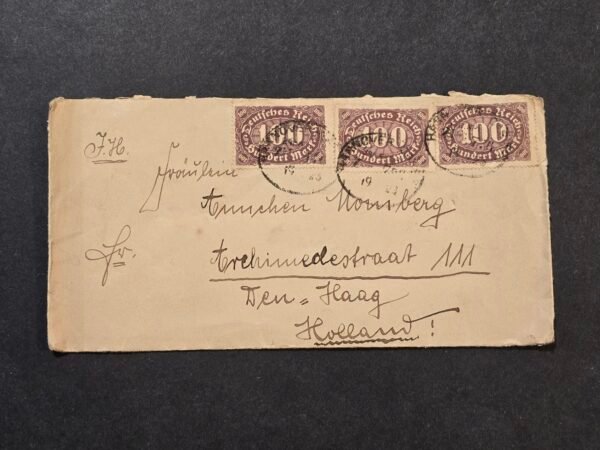 Deutsches Reich
100
Hundert Mark
Deutsches Reich
100
Hundert Mark
Deutsches Reich
100
Hundert Mark
HANNOVER
19
J.H.
Fräulein
Annchen Momberg
Fr.
Archimedestraat 111
Den=Haag
Holland!